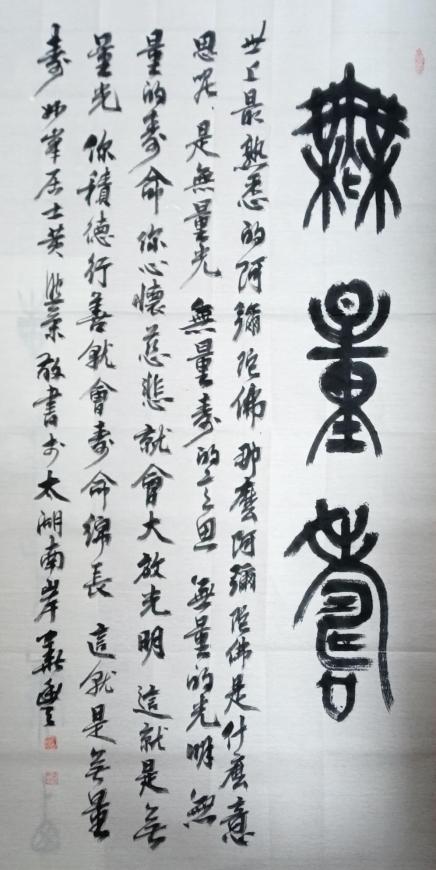 無量壽
世上最熟悉的阿彌陀佛那麼阿彌陀佛是什麼意
思呢是無量光無量壽的意思無量的光明無
量的壽命你心懷慈悲就會大放光明這就是無
量光你積德行善就會壽命綿長這就是無量
壽 居士黃 敬書於太湖南岸